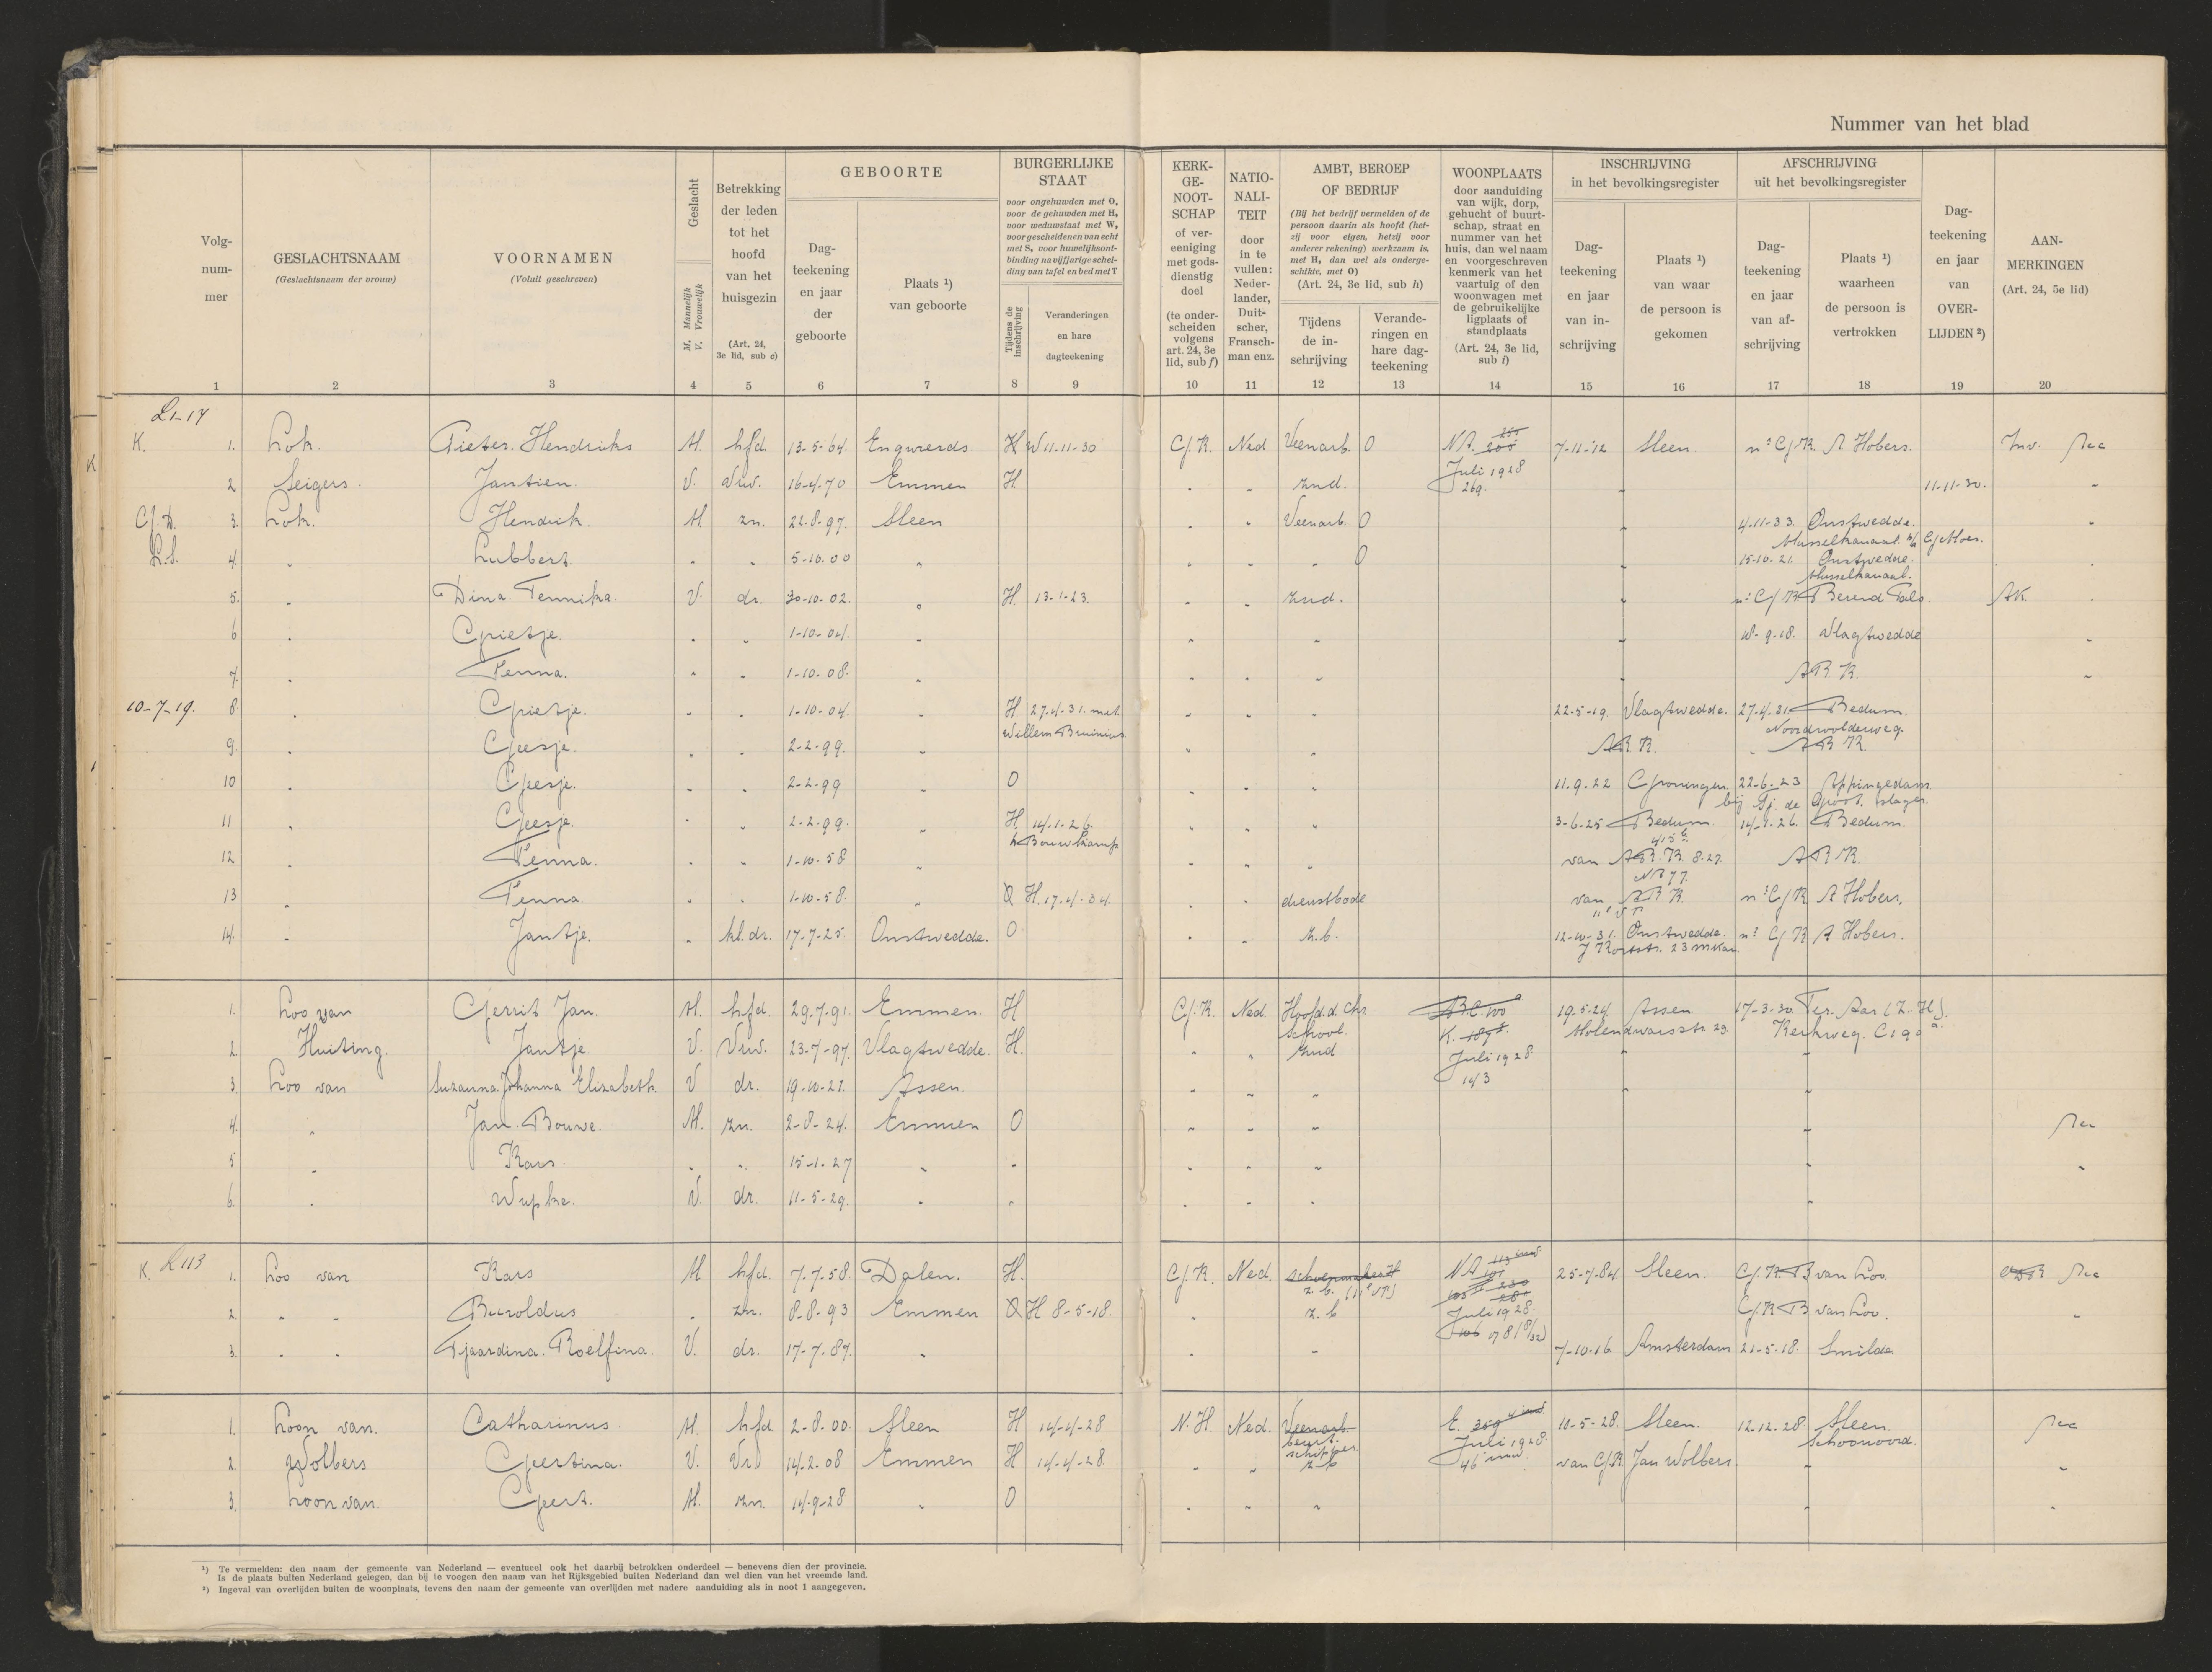 Nummer van het blad
Volg-
num-
mer
GESLACHTSNAAM
(Geslachtsnaam der vrouw)
VOORNAMEN
(Voluit geschreven)
Geslacht
M. Mannelijk
V. Vrouwelijk
Betrekking
der leden
tot het
hoofd
van het
huisgezin
(Art. 24,
3e lid, sub c)
GEBOORTE
Dag-
teekening
en jaar
der
geboorte
Plaats ¹)
van geboorte
BURGERLIJKE
STAAT
voor ongehuwden met O,
voor de gehuwden met H,
voor weduwstaat met W,
voor gescheidenen van echt
met S, voor huwelijksont-
binding na vijfjarige schei-
ding van tafel en bed met T
Tijdens de
inschrijving
Veranderingen
en hare
dagteekening
KERK-
GE-
NOOT-
SCHAP
of ver-
eeniging
met gods-
dienstig
doel
(te onder-
scheiden
volgens
art. 24, 3e
lid, sub f)
NATIO-
NALI-
TEIT
door
in te
vullen:
Neder-
lander,
Duit-
scher,
Fransch-
man enz.
AMBT, BEROEP
OF BEDRIJF
(Bij het bedrijf vermelden of de
persoon daarin als hoofd (het-
zij voor eigen, hetzij voor
anderer rekening) werkzaam is,
met H, dan wel als onderge-
schikte, met O)
(Art. 24, 3e lid, sub h)
Tijdens
de in-
schrijving
Verande-
ringen en
hare dag-
teekening
WOONPLAATS
door aanduiding
van wijk, dorp,
gehucht of buurt-
schap, straat en
nummer van het
huis, dan wel naam
en voorgeschreven
kenmerk van het
vaartuig of den
woonwagen met
de gebruikelijke
ligplaats of
standplaats
(Art. 24, 3e lid,
sub i)
INSCHRIJVING
in het bevolkingsregister
Dag-
teekening
en jaar
van in-
schrijving
Plaats ¹)
van waar
de persoon is
gekomen
AFSCHRIJVING
uit het bevolkingsregister
Dag-
teekening
en jaar
van af-
schrijving
Plaats ¹)
waarheen
de persoon is
vertrokken
Dag-
teekening
en jaar
van
OVER-
LIJDEN ²)
AAN-
MERKINGEN
(Art. 24, 5e lid)
1 2 3 4 5 6 7 8 9 10 11 12 13 14 15 16 17 18 19 20
L1-17
K. 1. Lok. Pieter Hendriks M. hfd. 13-5-64. Engwierds H W 11-11-30 G.K. Ned Veenarb. O NA. 7-11-12 Sleen. n: G.K. A Hobers. Inv.
2 Seigers. Jantien. V. Vuw. 16-4-70 Emmen H. " " znd. Juli 1928 269. " 11-11-30. "
G.D. 3. Lok. Hendrik. M zn. 22-8-97. Sleen Veenarb. O " 4-11-33. Onstwedde. "
Musselkanaal.
L.S. 4. " Lubbert. " " 5-10-00 " " " " O " 15-10-21. Onstwedde.
Musselkanaal.
5. " Dina Tennika. V. dr. 30-10-02. " H. 13-1-23. " " znd. " n: G/K Berend Pals AK.
6 " Grietje. " " 1-10-04. " " " " " 18-9-18. Vlagtwedde "
7. " Fenna. " " 1-10-08. " " " " " A R. K. "
10-7-19. 8. " Grietje. " " 1-10-04. " H. 27-4-31. met " " " 22-5-19. Vlagtwedde. 27-4-31 Bedum.
Willem Bruinius Noordwolderweg.
9. " Geesje. " " 2-2-99. " " " A R K. A R K.
10 " Geesje. " " 2-2-99 " O " " " 11-9-22 Groningen. 22-6-23 Appingedam
bij Gj. de Groot, slager.
11 " Geesje. " " 2-2-99. " H. 14-1-26. " " " 3-6-25 Bedum. 14-1-26. Bedum.
L Bouwkamp
12 Fenna. " " 1-10-58 " " " " van A R. K. 8.27. A R K.
NA 77.
13 " Fenna. " " 1-10-58. " O H. 17-4-34. " " dienstbode van A R K. n: G/K A Hobers.
14. " Jantje. " kl. dr. 17-7-25. Onstwedde. O " " z.b. 12-10-31. Onstwedde. n: G/K A Hobers.
23 mkan.
1. Loo van Gerrit Jan. M. hfd. 29-7-91. Emmen. H G.K. Ned. Hoofd d. Chr. 19-5-24 Assen 17-3-30 Ter Aar (Z-H).
school. Kerkweg. C190 a.
2. Huiting. Jantje V. Vuw. 23-7-97. Vlagtwedde. H. " " znd Juli 1928 " "
143
3. Loo van Suzanna Johanna Elizabeth. V dr. 19-10-21. Assen. " " " " "
4. " Jan Bouwe. M. zn. 2-8-24. Emmen O " " " "
5 " Kars. " " 15-1-27 " " " " " " "
6. " Wupke. V. dr. 11-5-29. " " " " " "
K. L113 1. Loo van Kars M hfd. 7-7-58. Dalen. H. G.K. Ned. schoenmaker H NA 25-7-84. Sleen. G.K B van Loo.
2. " " Beroldus " zn. 8-8-93 Emmen O H 8-5-18. " z.b Juli 1928. G.K B van Loo. "
3. " " Tjaardina Roelfina. V. dr. 17-7-87. " " " 7-10-16 Amsterdam 21-5-18. Smilde
1. Loon van. Catharinus M. hfd 2-8-00. Sleen H 14-4-28 N.H. Ned. Veenarb. E. 359 10-5-28. Sleen. 12-12-28. Sleen.
beurt- Juli 1928. Schoonoord.
schipper
2. Wolbers Geertina. V. Vr 14-2-08 Emmen H 14-4-28. " " z.b 46 van G/K Jan Wolbers. " "
3. Loon van. Geert. M. zn. 14-9-28 " O " " " " "
¹) Te vermelden: den naam der gemeente van Nederland — eventueel ook het daarbij betrokken onderdeel — benevens dien der provincie.
Is de plaats buiten Nederland gelegen, dan bij te voegen den naam van het Rijksgebied buiten Nederland dan wel dien van het vreemde land.
²) Ingeval van overlijden buiten de woonplaats, tevens den naam der gemeente van overlijden met nadere aanduiding als in noot 1 aangegeven.